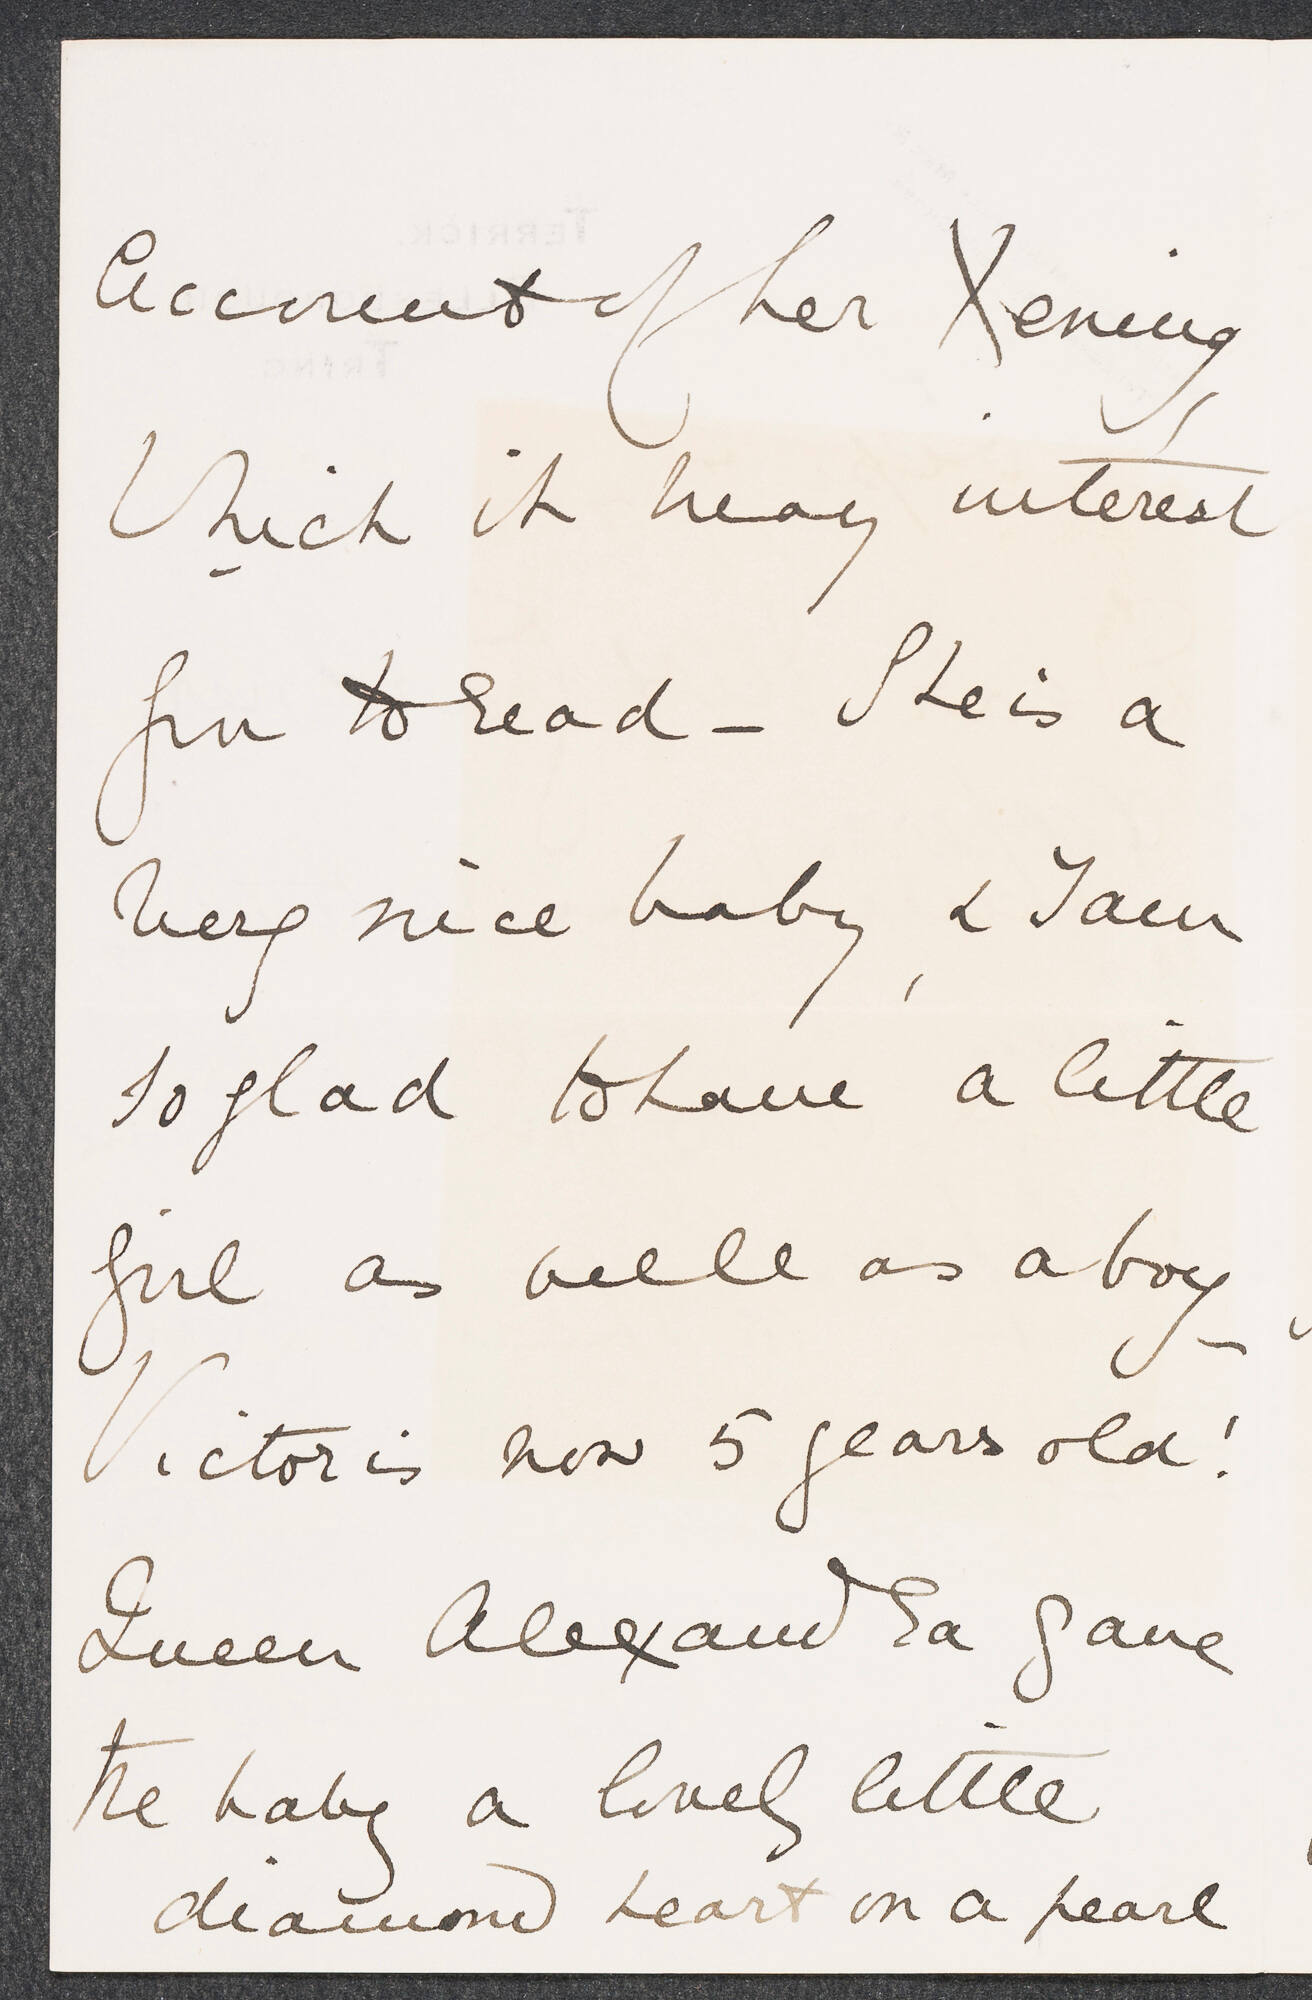 Account of her Xening
Which it may interest
you to read - She is a
very nice baby, & I am
so glad to have a little
girl as well as a boy -
Victor is now 5 years old!
Queen Alexandra gave
the baby a lovely little
diamond heart on a pearl